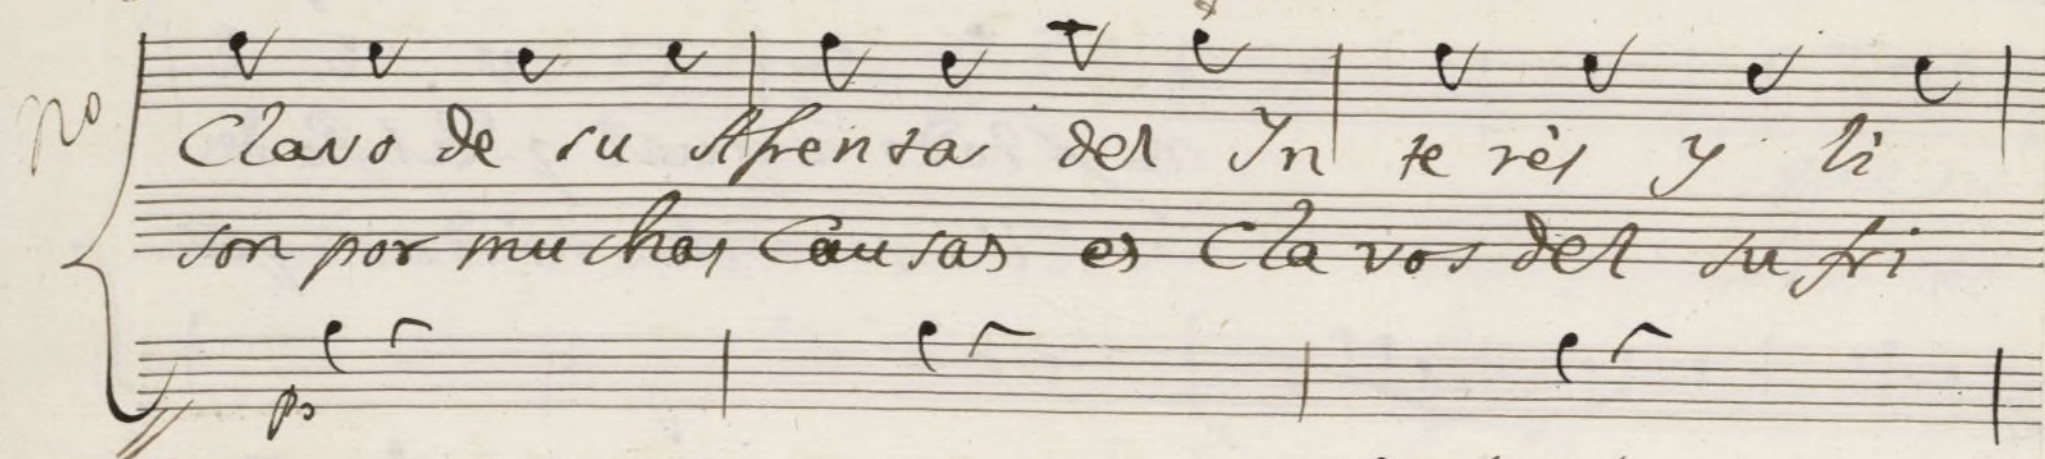 no
Clavo de su Afrenta del Yn te rès y li
son por mu chas Causas es Cla vos del su fri
po